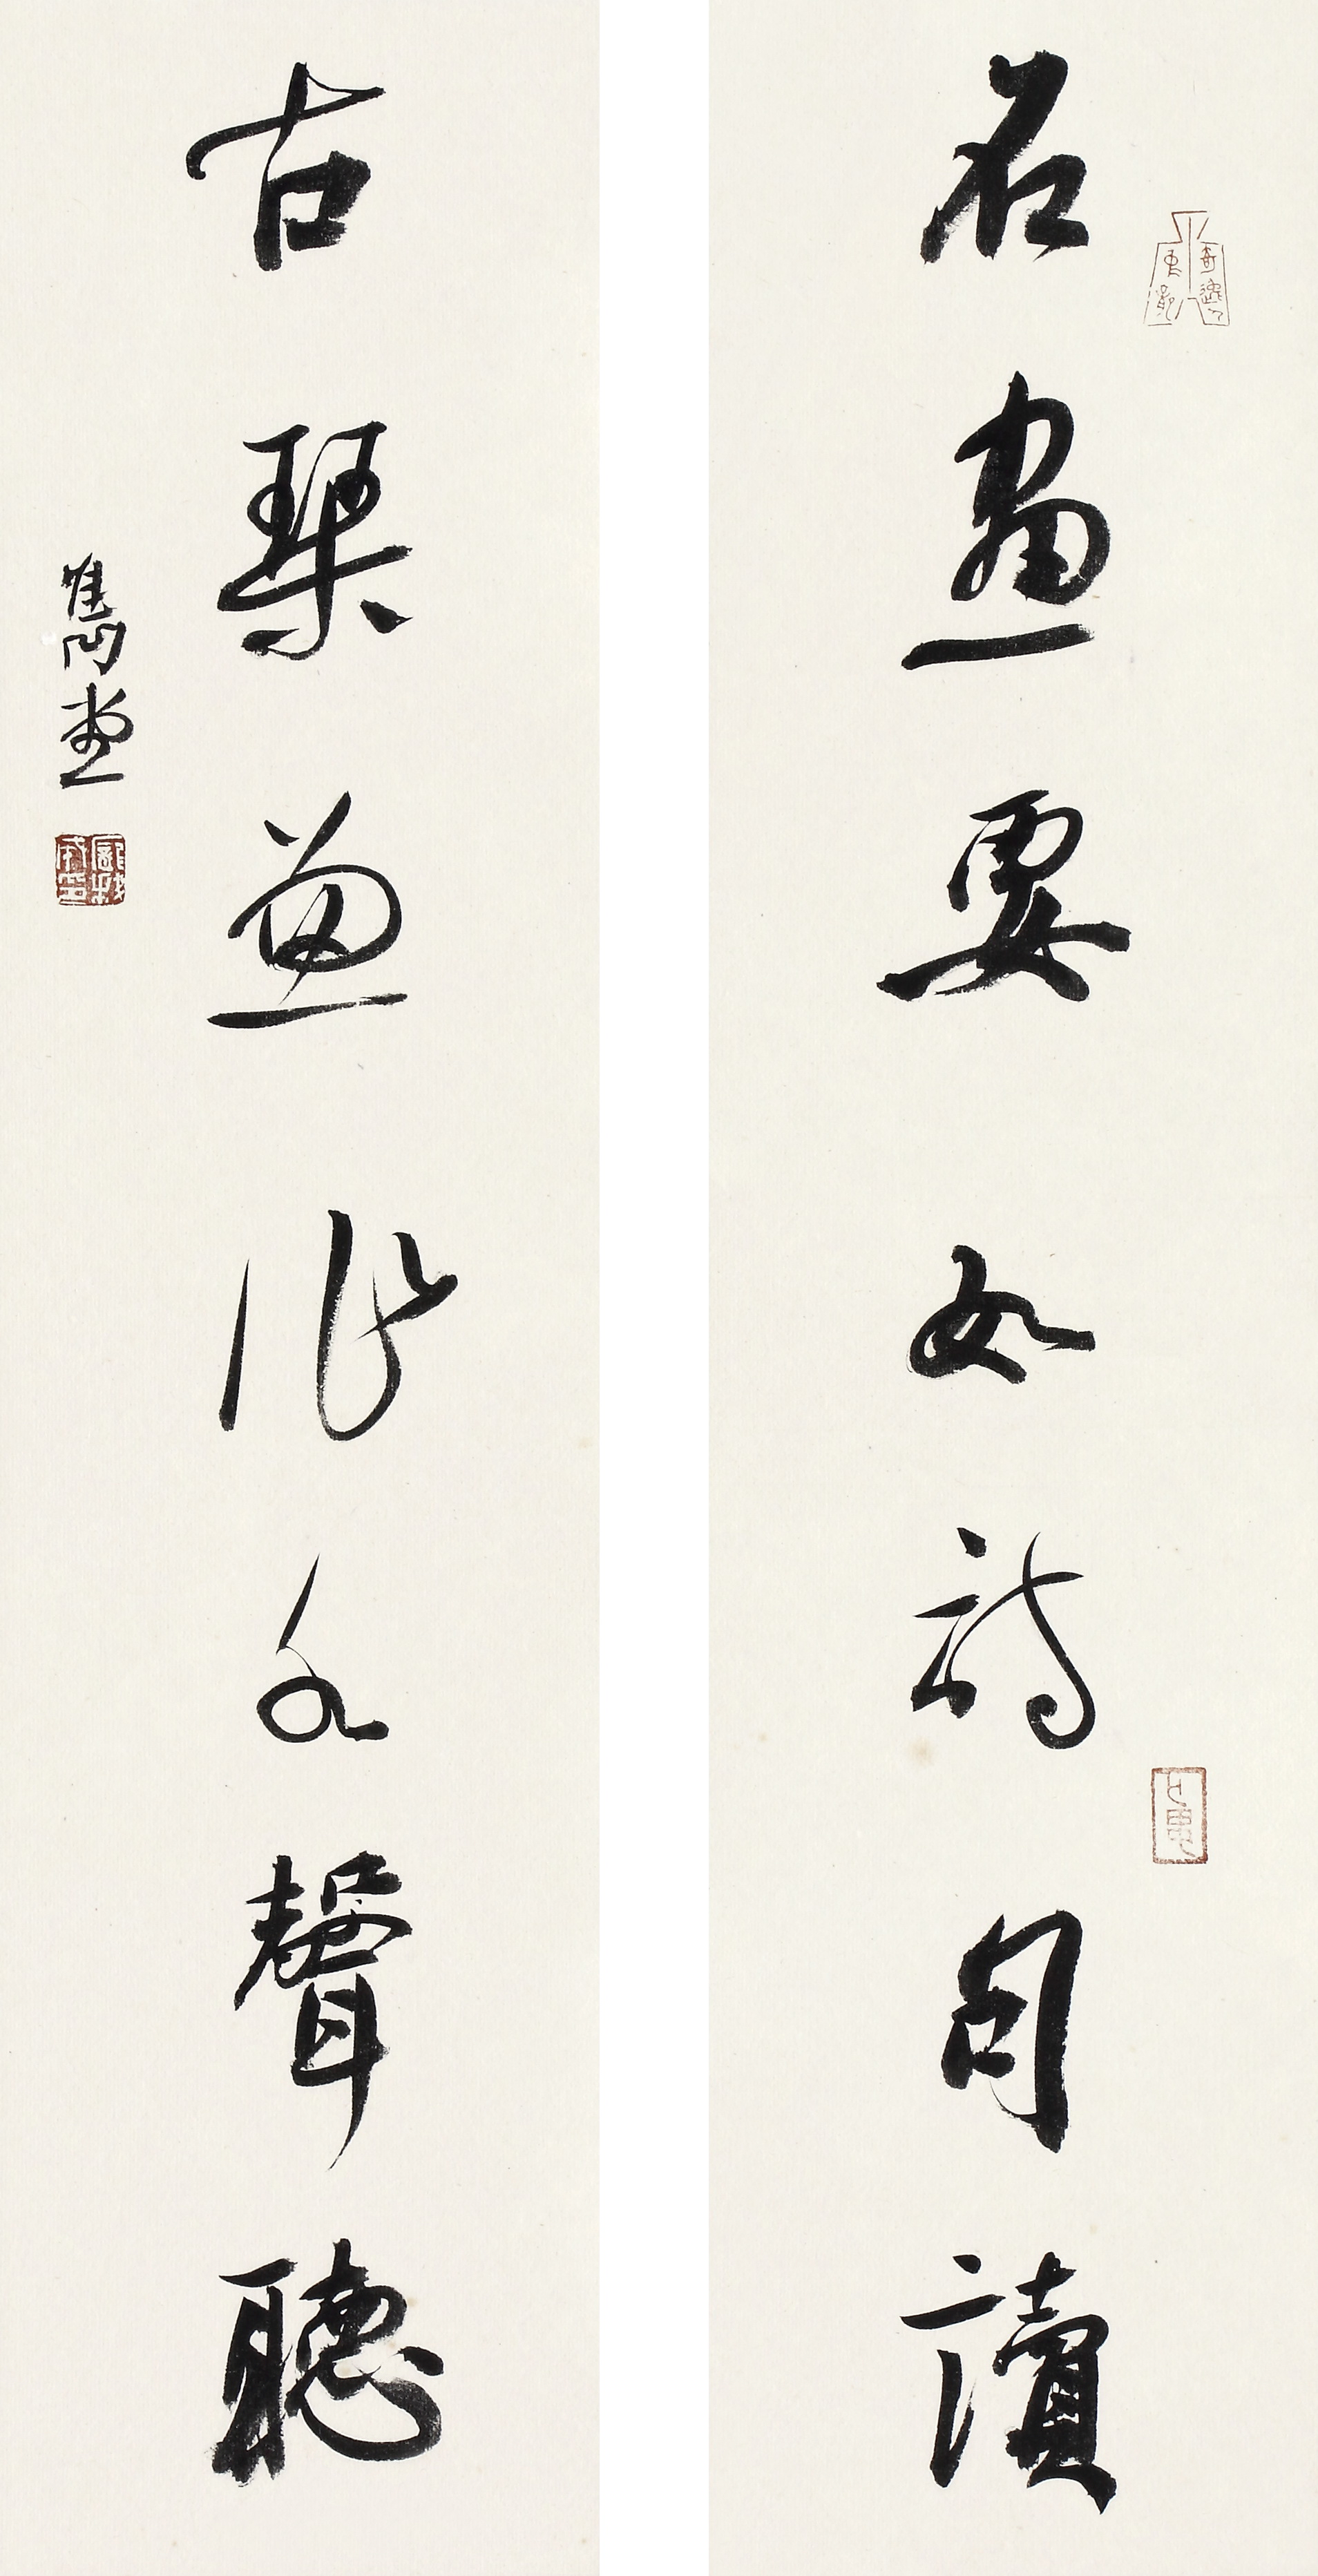 名畫要如詩句讀
古琴兼作水聲聽
雋堂